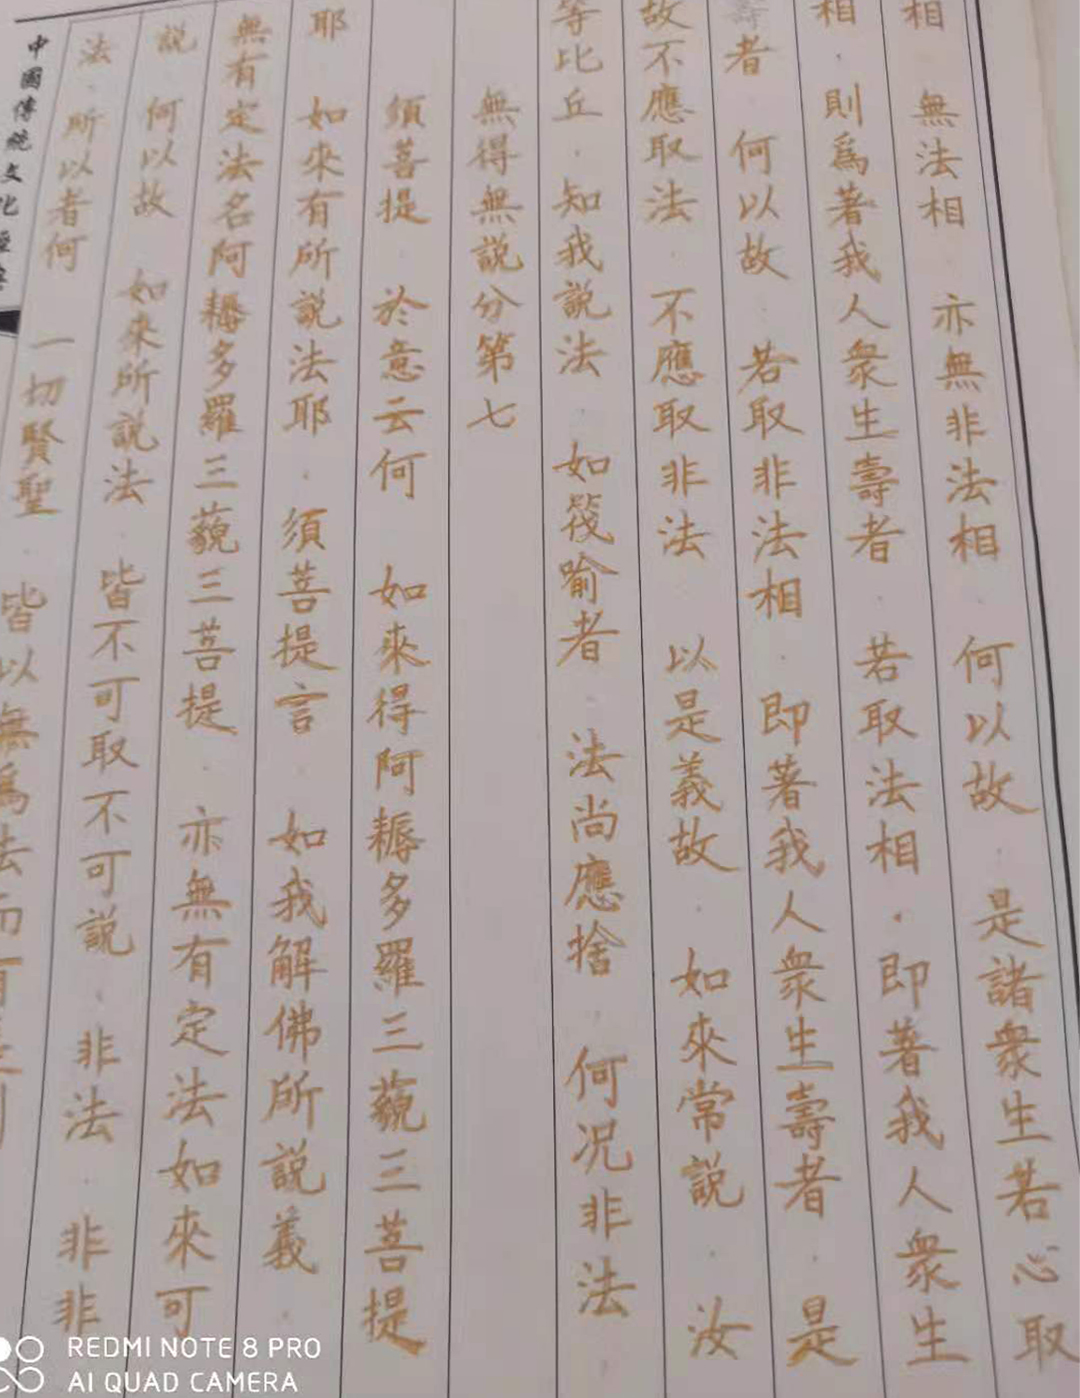 相 無法相 亦無非法相 何以故 是諸衆生若心取
相 則爲著我人衆生壽者 若取法相 即著我人衆生
壽者 何以故 若取非法相 即著我人衆生壽者 是
故不應取法 不應取非法 以是義故 如來常説 汝
等比丘 知我説法 如筏喻者 法尚應捨 何况非法
無得無説分第七
須菩提 於意云何 如來得阿耨多羅三藐三菩提
耶 如來有所説法耶 須菩提言 如我解佛所説義
無有定法名阿耨多羅三藐三菩提 亦無有定法如來可
説 何以故 如來所説法 皆不可取不可説 非法 非非
法 所以者何 一切賢聖 皆以無爲法而有
中國傳統文化
REDMI NOTE 8 PRO
AI QUAD CAMERA